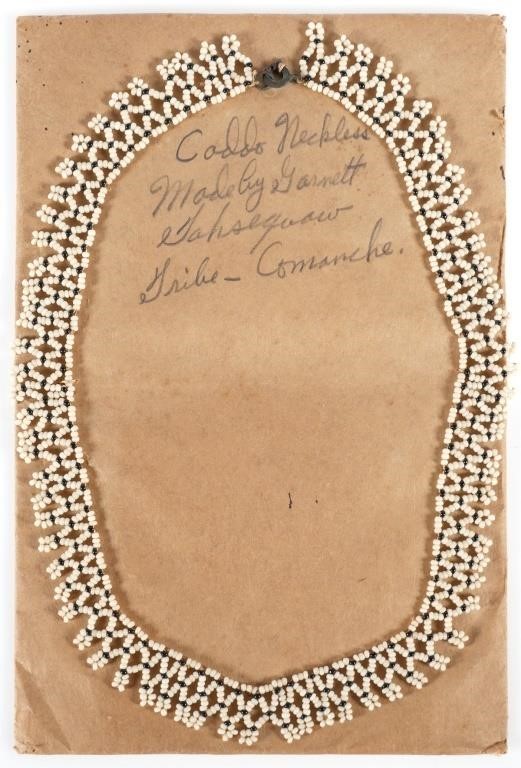 Caddo Neckless
Made by Garnett
Tahsequaw
Tribe - Comanche.